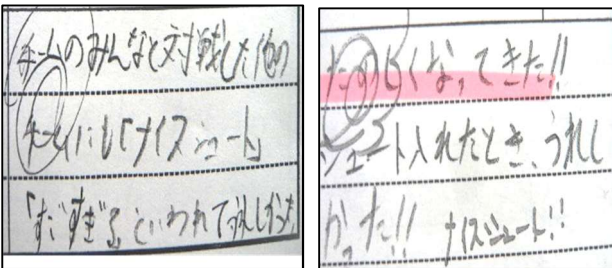 チームのみんなと対戦した他の
チームにも「ナイスシュート」
「すごすぎる」といわれてうれしかった
たのしくなってきた!!
シュート入れたとき、うれし
かった!! ナイスシュート!!